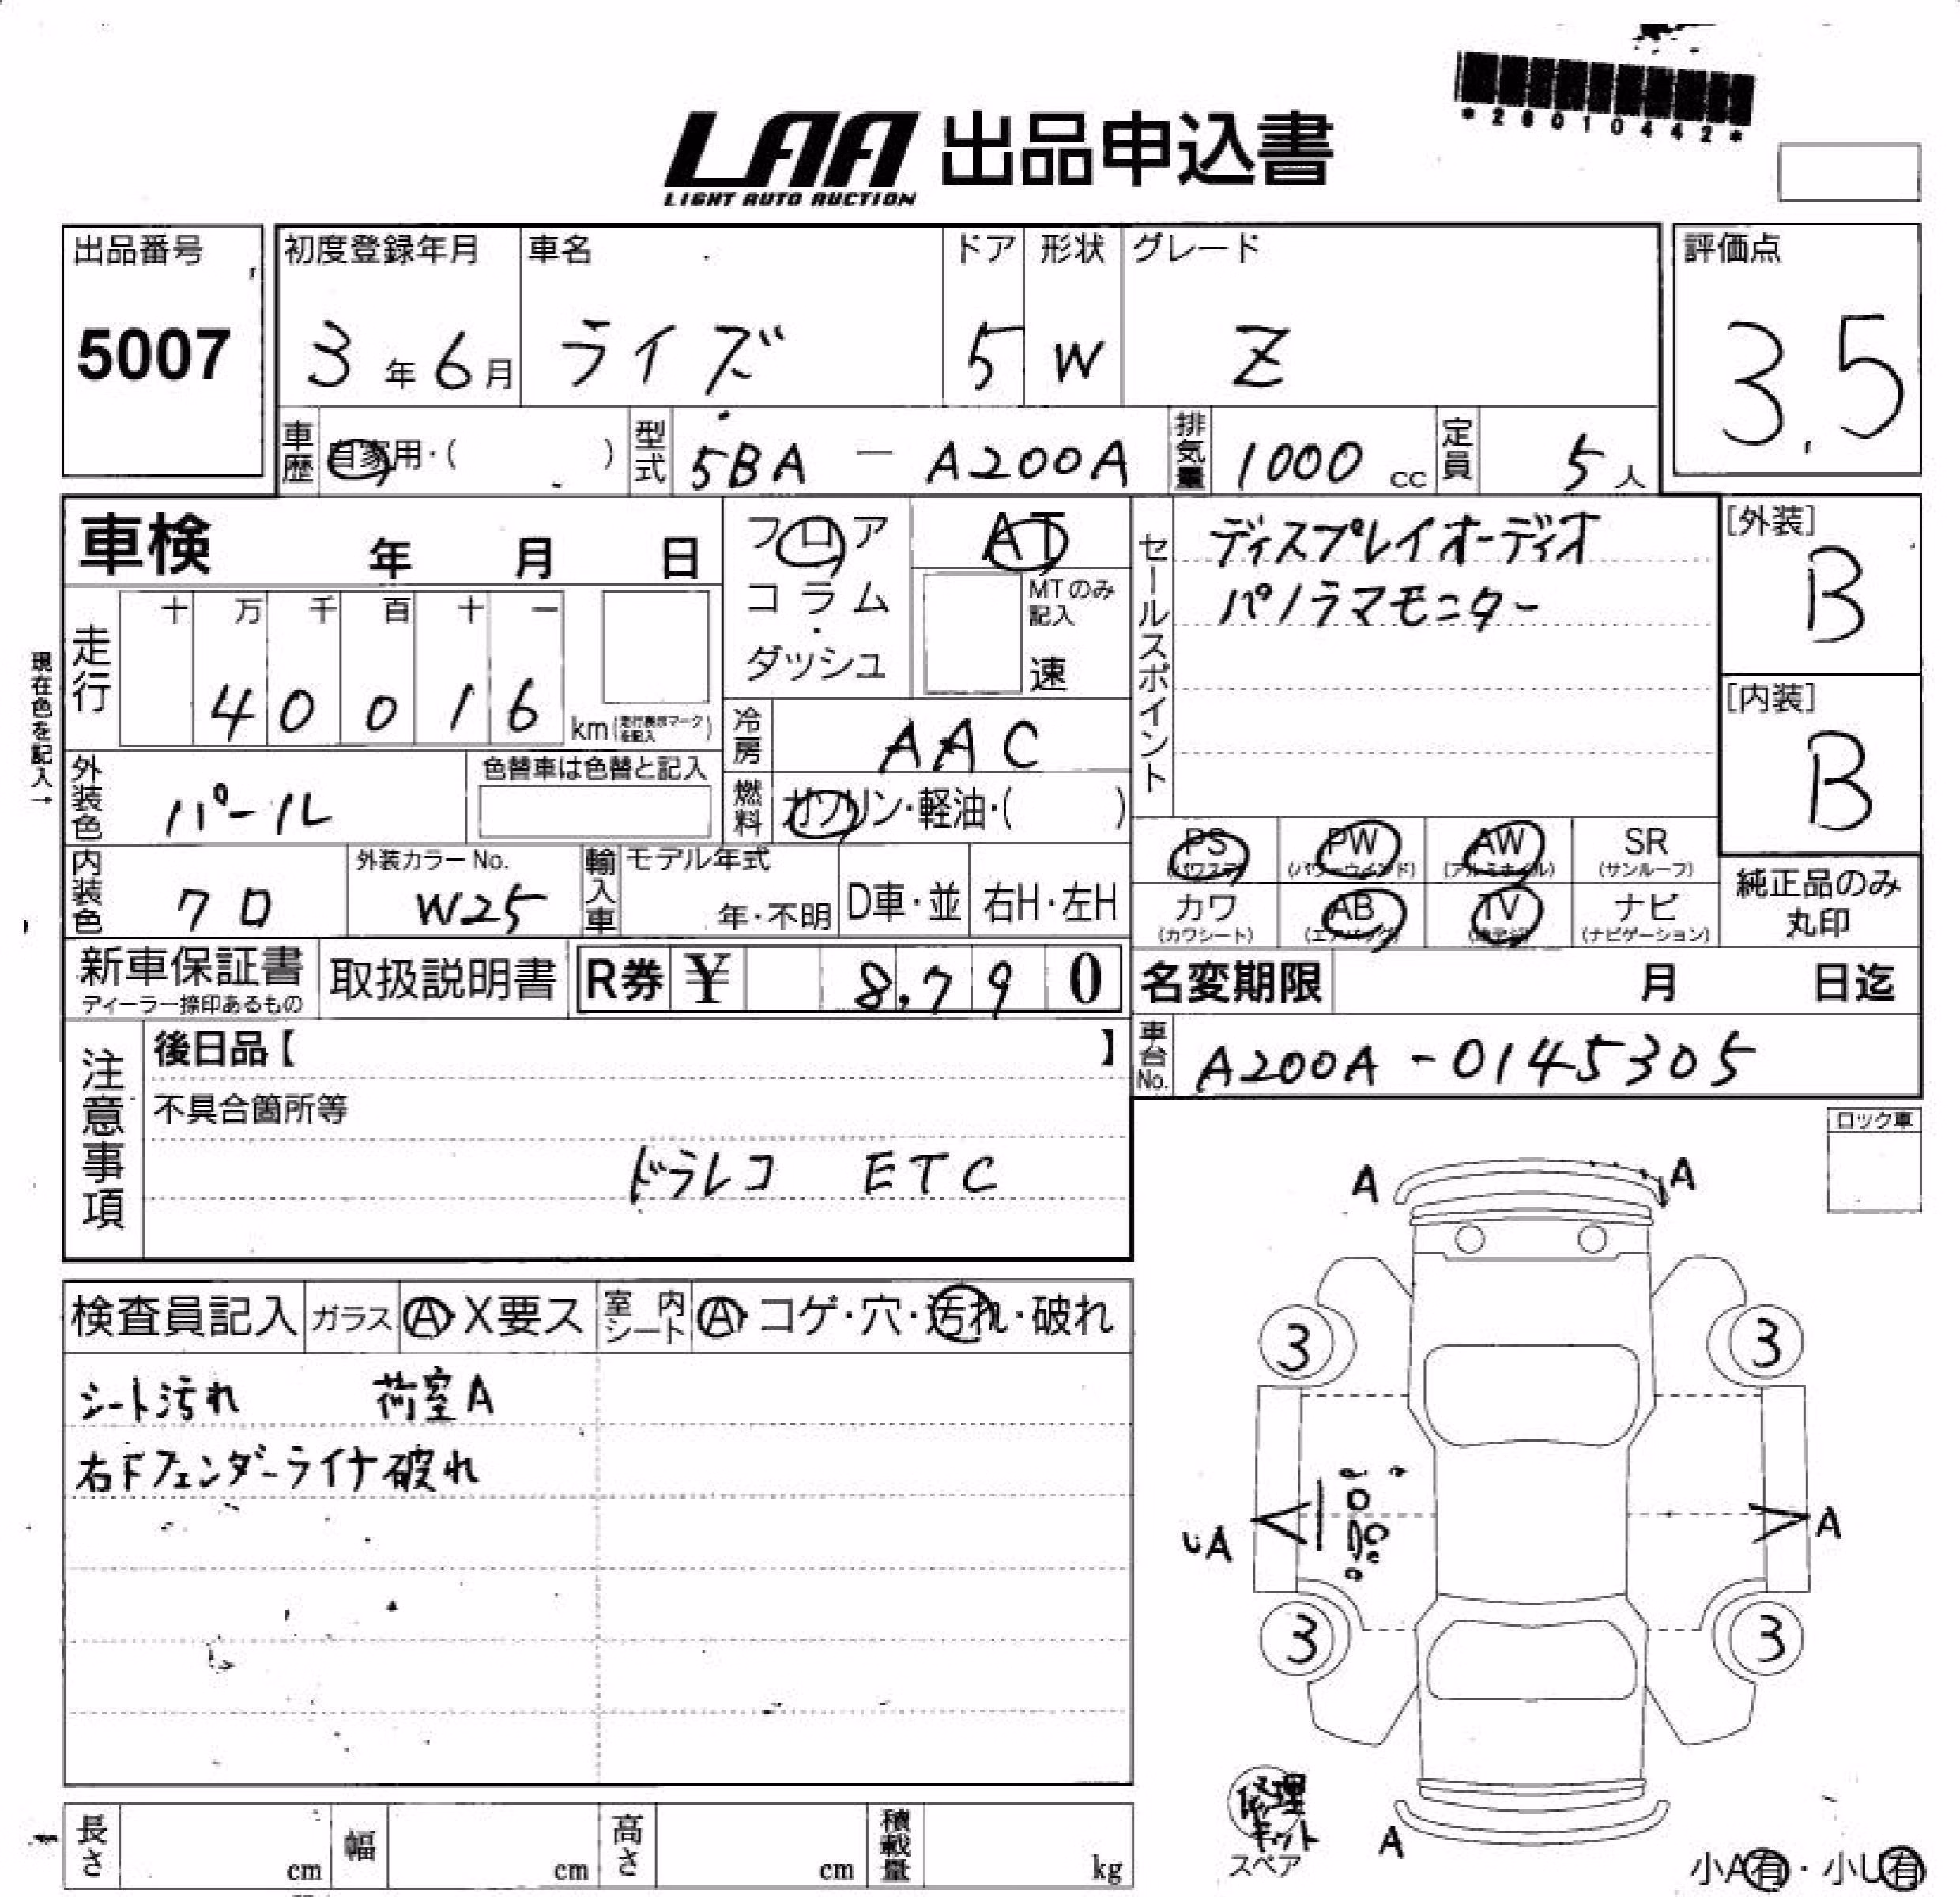 *26010442*
LAA 出品申込書
LIGHT AUTO AUCTION
出品番号 初度登録年月 車名 ドア 形状 グレード 評価点
5007 3年6月 ライズ 5 W Z 3.5
車歴 自家用・( ) 型式 5BA - A200A 排気量 1000 cc 定員 5人
車検 年 月 日 フロア AT セールスポイント ディスプレイオーディオ [外装]
コラム・ MTのみ記入 パノラマモニター B
ダッシュ 速
現在色を記入→
走行 十 万 千 百 十 一
4 0 0 1 6 km(走行表示マークを記入) [内装]
冷房 AAC B
外装色 パール 色替車は色替と記入 燃料 ガソリン・軽油・( )
PS (パワステ) PW (パワーウインド) AW (アルミホイル) SR (サンルーフ)
カワ (カワシート) AB (エアバッグ) TV (テレビ) ナビ (ナビゲーション) 純正品のみ丸印
内装色 クロ 外装カラーNo. W25 輸入車 モデル年式 年・不明 D車・並 右H・左H
新車保証書 ディーラー捺印あるもの 取扱説明書 R券 ¥ 8,790 名変期限 月 日迄
注意事項 後日品【 】 車台No. A200A-0145305
不具合箇所等
ドラレコ ETC
ロック車
検査員記入 ガラス A・X要ス 室内シート A・コゲ・穴・汚れ・破れ
シート汚れ 荷室A
右Fフェンダーライナ破れ
A A
3 3
UA A
3 3
修理キット
スペア
A
小A有・小U有
長さ cm 幅 cm 高さ cm 積載量 kg